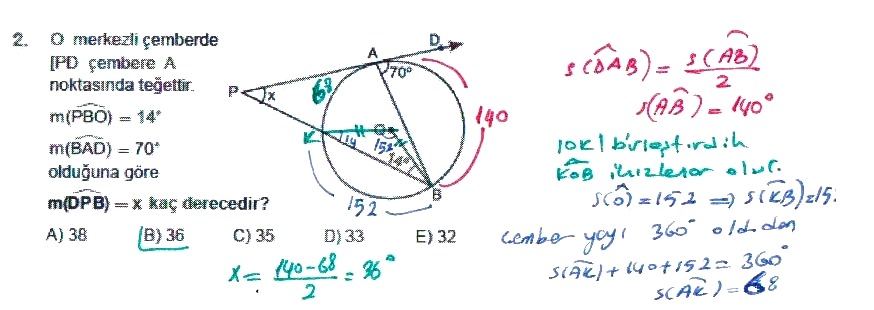 2. O merkezli çemberde
[PD çembere A
noktasında teğettir.
m(PBO) = 14°
m(BAD) = 70°
olduğuna göre
m(DPB) = x kaç derecedir?
A) 38 B) 36 C) 35 D) 33 E) 32
P
A
D
B
O
K
x
70°
68
14
152
14°
140
152
x = 140-68 / 2 = 36°
s(DAB) = s(AB) / 2
s(AB) = 140°
|OK| birleştirdik
KOB ikizkenar olur.
s(O) = 152 => s(KB)=15.
çember yayı 360° old.dan
s(AK) + 140 + 152 = 360°
s(AK) = 68